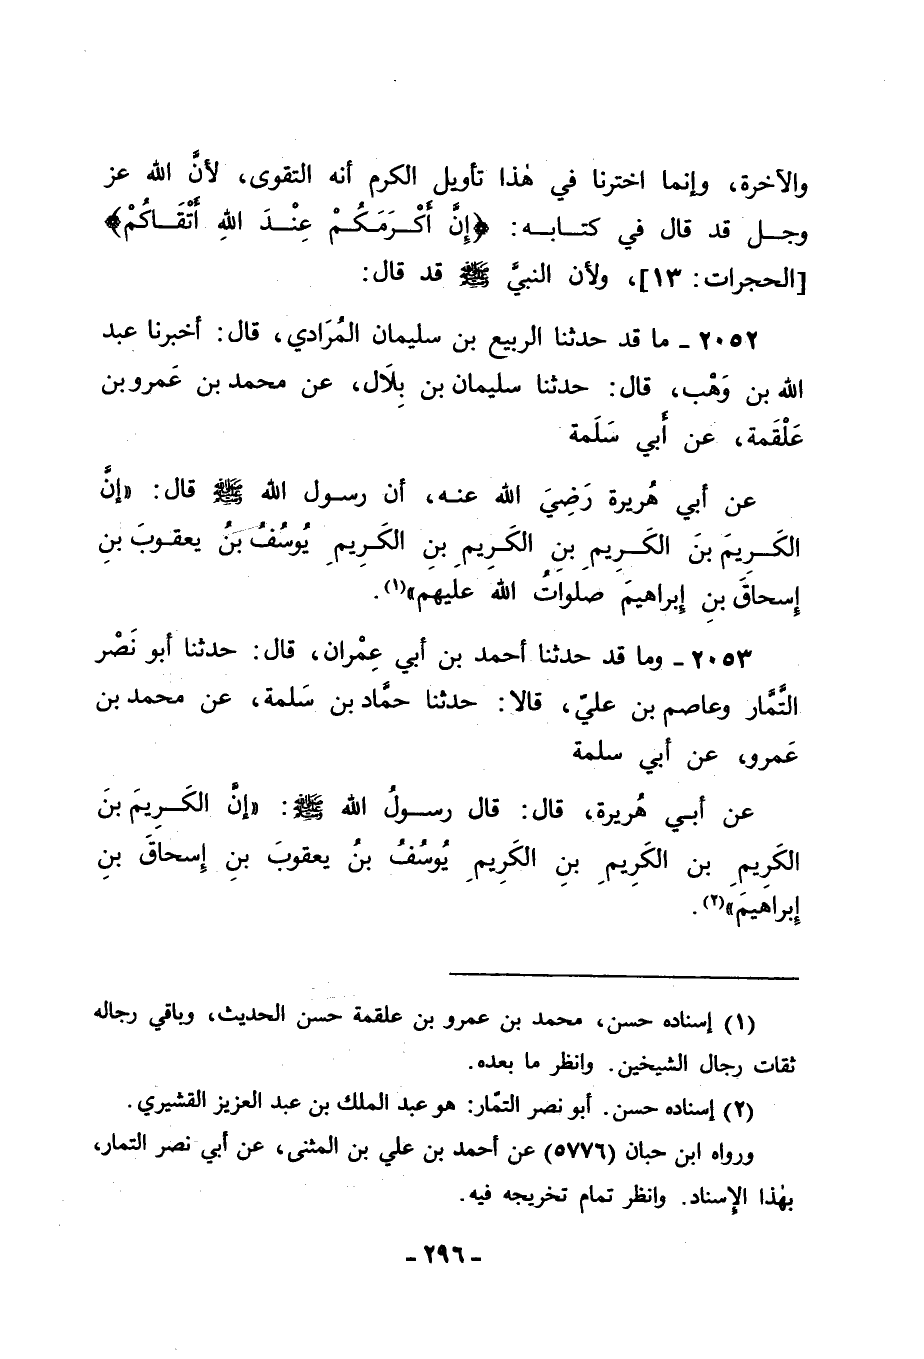 والآخرة، وإنما اخترنا في هٰذا تأويل الكرم أنه التقوى، لأنَّ الله عز
وجــل قد قال في كتــابــه: ﴿إِنَّ أَكْــرَمَـكُــمْ عِنْــدَ اللهِ أَتْقَــاكُمْ﴾
[الحجرات: ١٣]، ولأن النبيَّ ﷺ قد قال:
٢٠٥٢ ـ ما قد حدثنا الربيع بن سليمان المُرَادي، قال: أخبرنا عبد
الله بن وَهْب، قال: حدثنا سليمان بن بِلَال، عن محمد بن عَمرو بن
عَلْقَمة، عن أَبي سَلَمة
عن أبي هُريرة رَضِيَ الله عنـه، أن رسـول الله ﷺ قال: «إنَّ
الكَــريمَ بنَ الكَــريمِ بنِ الكَـريمِ بنِ الكَـريمِ يُوسُفُ بنُ يعقـوبَ بنِ
إسحاقَ بنِ إبراهيمَ صلواتُ الله عليهم»(١).
٢٠٥٣ ـ وما قد حدثنا أحمد بن أبي عِمْران، قال: حدثنا أبو نَصْر
التَّمَّار وعاصم بن عليّ، قالا: حدثنا حمَّاد بن سَلمة، عن محمد بن
عَمرو، عن أبي سلمة
عن أبـي هُريرة، قال: قال رسـولُ الله ﷺ: «إنَّ الكَـريمَ بنَ
الكَريمِ بن الكَريمِ بنِ الكَريمِ يُوسُفُ بنُ يعقوبَ بنِ إسحاقَ بنِ
إبراهيمَ»(٢).
(١) إسناده حسن، محمد بن عمرو بن علقمة حسن الحديث، وباقي رجاله
ثقات رجال الشيخين. وانظر ما بعده.
(٢) إسناده حسن. أبو نصر التمّار: هو عبد الملك بن عبد العزيز القشيري.
ورواه ابن حبان (٥٧٧٦) عن أحمد بن علي بن المثنى، عن أبي نصر التمار،
بهٰذا الإسناد. وانظر تمام تخريجه فيه.
ـ ٢٩٦ ـ